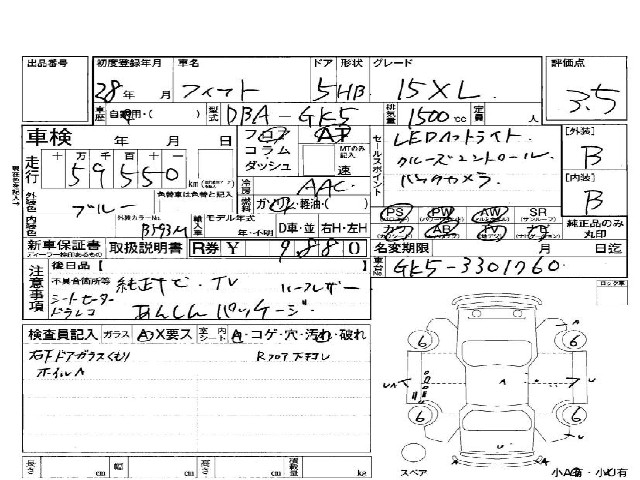 出品番号 初度登録年月 車名 ドア 形状 グレード 評価点
28年 月 フィット 5 HB 15XL 3.5
車歴 自家用・( ) 型式 DBA-GK5 排気量 1500cc 定員 人
車検 年 月 日 フロア AT セールスポイント LEDヘッドライト [外装] B
走行 十万 千百十一 59550 km コラム MTのみ記入 クルーズコントロール
ダッシュ 速 [内装] B
外装色 ブルー 色替車は色替と記入 冷房 AAC 燃料 ガソリン・軽油・( ) バックカメラ
内装色 外装カラーNo. B593M 輸入車 モデル年式 年・不明 D車・並 右H・左H
PS PW AW SR (サンルーフ)
カワ AB TV ナビ 純正品のみ丸印
新車保証書 取扱説明書 R券 ¥ 9880 名変期限 月 日迄
注意事項 後日品【 】 車台No. GK5-3301760
不具合箇所等 純正ナビ・TV ルーフレザー
シートヒーター
ドラレコ あんしんパッケージ
ロック車
検査員記入 ガラス A・X要ス 室内シート A・コゲ・穴・汚れ・破れ
右ドアガラスくもり Rフロア下キコレ
ホイルA
6 6
UA A U
6 6
A U A
スペア 小A有・小U有
長さ cm 幅 cm 高さ cm 積載量 kg